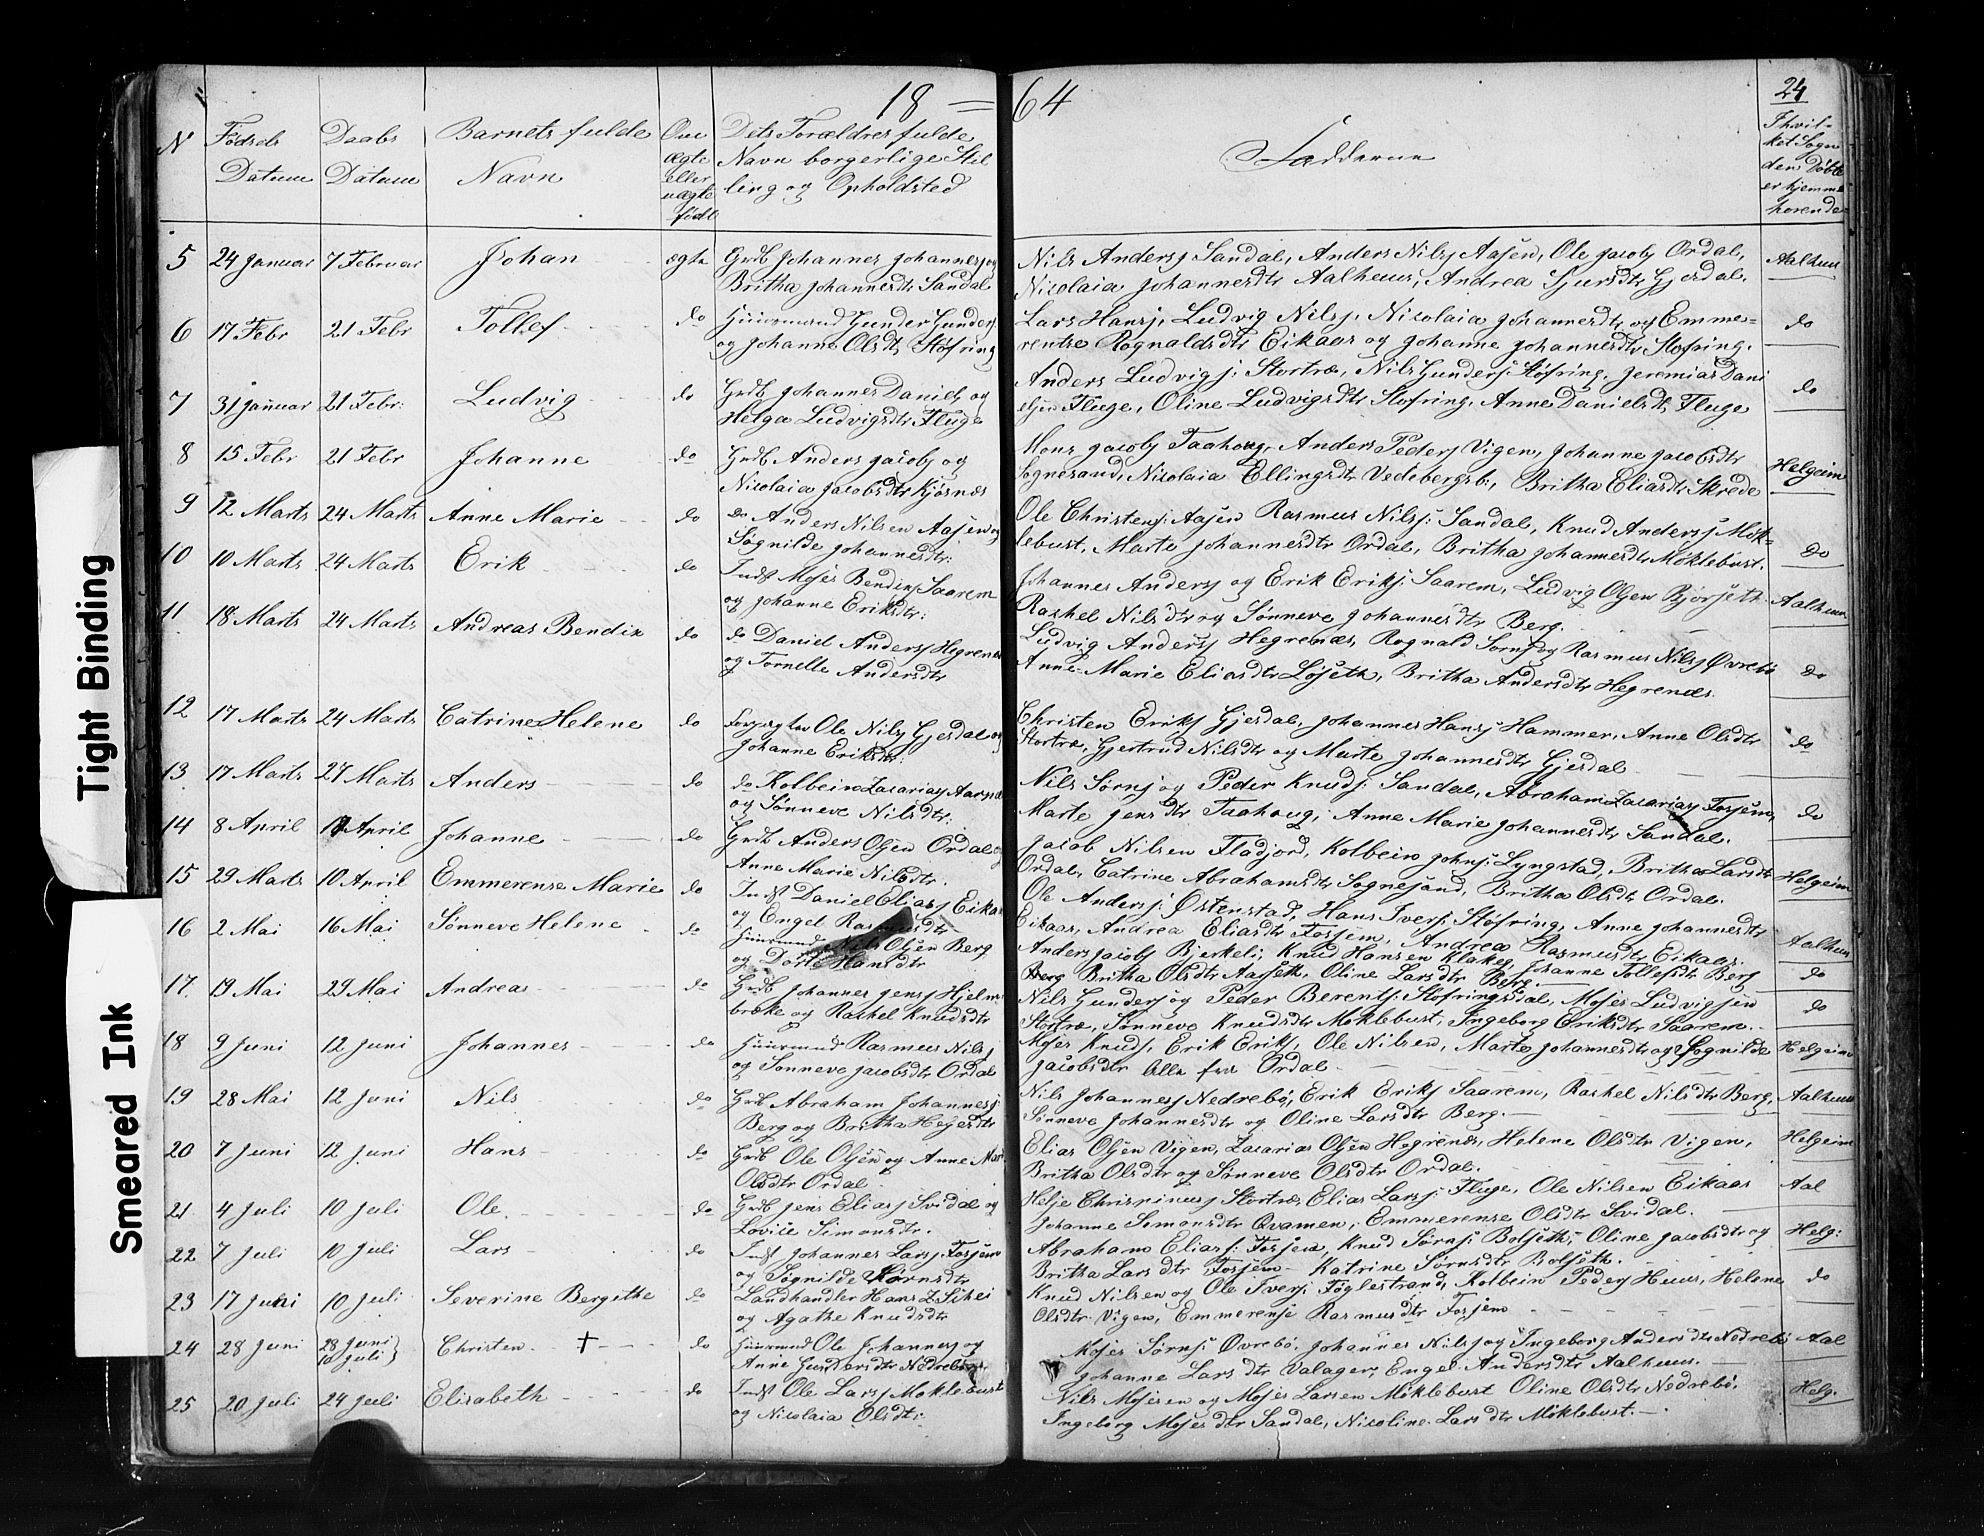 18 = 64
24
N
Fødsels Datum
Daabs Datum
Barnets fulde Navn
Om ægte eller uægte født
Dets Forældres fulde Navn borgerlige Stilling og Opholdsted
Fadderne
I hvilket Sogn den Døbte er hjemmehørende
5 24 Januar 7 Februar Johan ægte Grdb Johannes Johannesj og
Britha Johannesdtr Sandal
Nils Andersj Sandal, Anders Nilsj Aasen, Ole Jacobj Ordal,
Nicolaia Johannesdtr Aalhuus, Andrea Sjursdtr Gjesdal.
Aalhuus
6 17 Febr 21 Febr Tollef do Huusmand Gunder Gundersj
og Johanne Olsdtr Støfring
Lars Hansj, Ludvig Nilsj, Nicolaia Johannesdtr og Emme=
rentse Rognaldsdtr Eikaas og Johanne Johannesdtr Stofring.
do
7 31 Januar 21 Febr: Ludvig do Grdb Johannes Danielj og
Helga Ludvigsdtr Fluge
Anders Ludvigj: Stortræ, Nils Gundersj: Støfring, Jeremias Dani
elsen Fluge, Oline Ludvigsdtr Stofring, Anne Danielsdtr Fluge
do
8 15 Febr 21 Febr Johanne do Grdb Anders Jacobj og
Nicolaia Jacobsdtr Kjøsnæs
Mons Jacobj Taahoug, Anders Pedersj Vigen, Johanne Jacobsdtr
Sognesand, Nicolaia Ellingsdtr Vedebergsb:, Britha Eliasdtr Skrede
Helgeim
9 12 Marts 24 Marts Anne Marie do do Anders Nilsen Aasen og
Søgnilde Johannesdtr:
Ole Christensj: Aasen Rasmus Nilsj: Sandal, Knud Andersj Møk=
lebust, Marte Johannesdtr Ordal, Britha Johannesdtr Møklebust.
do
10 10 Marts 24 Marts Erik do Indst Mojes Bendixj Saarem
og Johanne Eriksdtr:
Johannes Andersj og Erik Eriksj: Saarem, Ludvig Olsen Bjørseth
Rakel Nilsdtr og Sønneve Johannesdtr Berg.
Aalhuus
11. 18 Marts 24 Marts Andreas Bendix do do Daniel Andersj Hegrenæs
og Tornelle Andersdtr
Ludvig Andersj Hegrenæs, Rognald Sørnj og Rasmus Nilsj Øvrebø
Anne Marie Eliasdtr Løseth, Britha Andersdtr Hegrenæs.
do
12 17 Marts 24 Marts Catrine Helene do Forpagter Ole Nilsj Gjesdal og
Johanne Eriksdtr:
Christen Eriksj Gjesdal, Johannes Hansj Hammer, Anne Olsdtr
Stortræ, Gjertrud Nilsdtr og Marte Johannesdtr Gjesdal
do
13 17 Marts 27 Marts Anders do do Kolbein Zacariasj Aarnæs
og Sønneve Nilsdtr:
Nils Sørnj og Peder Knudsj: Sandal, Abraham Zacariasj Fosjem,
Marte Jensdtr Taahoug, Anne Marie Johannesdtr Sandal.
do
14 8 April 17 April Johanne do Grdb Anders Olsen Ordal og
Anne Marie Nilsdtr.
Jacob Nilsen Fladjord, Kolbein Johnsj: Lyngstad, Britha Larsdtr
Ordal, Catrine Abrahamsdtr Sognesand, Britha Olsdtr Ordal.
Helgeim
15 29 Marts 10 April Emmerense Marie do Indst Daniel Eliasj Eikaas
og Engel Rasmusdtr
Ole Andersj: Østenstad, Hans Iversj: Støfring, Anne Johannesdtr
Eikaas, Andrea Eliasdtr Fosjem, Andrea Rasmusdtr Eikaas.
Aalhuus
16 2 Mai 16 Mai Sønneve Helene do Huusmand Nils Olsen Berg
og Dorte Hansdtr
Anders Jacobj Bjerkeli, Knud Hansen Klakeg, Johanne Tollefsdtr Berg
Berg Britha Olsdtr Aaseth, Oline Larsdtr Berg.
do
17. 19 Mai 29 Mai Andreas do Grdb Johannes Jensj Hjelm=
bræke og Rakel Knudsdtr
Nils Gundersj og Peder Berentsj: Stofringsdal, Mojes Ludvigsen
Stortræ, Sønneve Knudsdtr Møklebust, Ingeborg Eriksdtr Saarem.
do
18 9 Juni 12 Juni Johannes do Huusmand Rasmus Nilsj
og Sønneve Jacobsdtr Ordal
Mojes Knudsj, Erik Eriksj, Ole Nilsen, Marte Johannesdtr og Søgnilde
Jacobsdtr Alle fra Ordal
Helgeim
19 28 Mai 12 Juni Nils do Grdb Abraham Johannesj
Berg og Britha Hejesdtr
Nils Johannesj Nedrebø, Erik Eriksj Saarem, Rakel Nilsdtr Berg,
Sønneve Johannesdtr og Oline Larsdtr Berg.
Aalhuus
20 7 Juni 12 Juni Hans do Grdb Ole Olsen og Anne Mar
Olsdtr Ordal
Elias Olsen Vigen, Zacarias Olsen Hegrenæs, Helene Olsdtr Vigen,
Britha Olsdtr og Sønneve Olsdtr Ordal.
Helgeim
21 4 Juli 10 Juli Ole. do Grdb Jens Eliasj Svidal og
Lovise Simonsdtr.
Helje Chrispinusj Stortræ, Elias Larsj: Fluge, Ole Nilsen Eikaas
Johanne Simonsdtr Qvamen, Emmerense Olsdtr Svidal.
Aal
22 7 Juli 10 Juli Lars do Indst Johannes Larsj. Fosjem
og Søgnilde Sørnsdtr
Abraham Eliasj: Fosjem, Knud Sørnsj Bolseth, Oline Jacobsdtr og
Britha Larsdtr Fosjem - Katrine Sørnsdtr Bolseth.
Helg:
23 17 Juni 10 Juli Severine Bergithe do Landhandler Hans Z Sikei
og Agathe Knudsdtr
Knud Nilsen og Ole Iversj. Føglestrand, Kolbein Pedersj Huus, Helene
Olsdtr. Vigen, Emmerense Rasmusdtr Fosjem
do
24 28 Juni 28 Juni 10 Juli } Christen + do Huusmand Ole Johannesj og
Anne Gundersdtr Nedrebø
Mojes Sørnsj Øvrebø, Johannes Nilsj og Ingeborg Andersdtr Nedrebø
Johanne Larsdtr Valager, Engel Andersdtr Aalhuus.
Aal
25 20 Juli 24 Juli Elisabeth do Indst Ole Larsj Moklebust
og Nicolaia Olsdtr:
Nils Mojesen og Mojes Larsen Møklebust Oline Olsdtr Nedrebø.
Ingeborg Mojesdtr Sandal, Nicoline Larsdtr Møklebust.
Helg.
Tight Binding
Smeared Ink